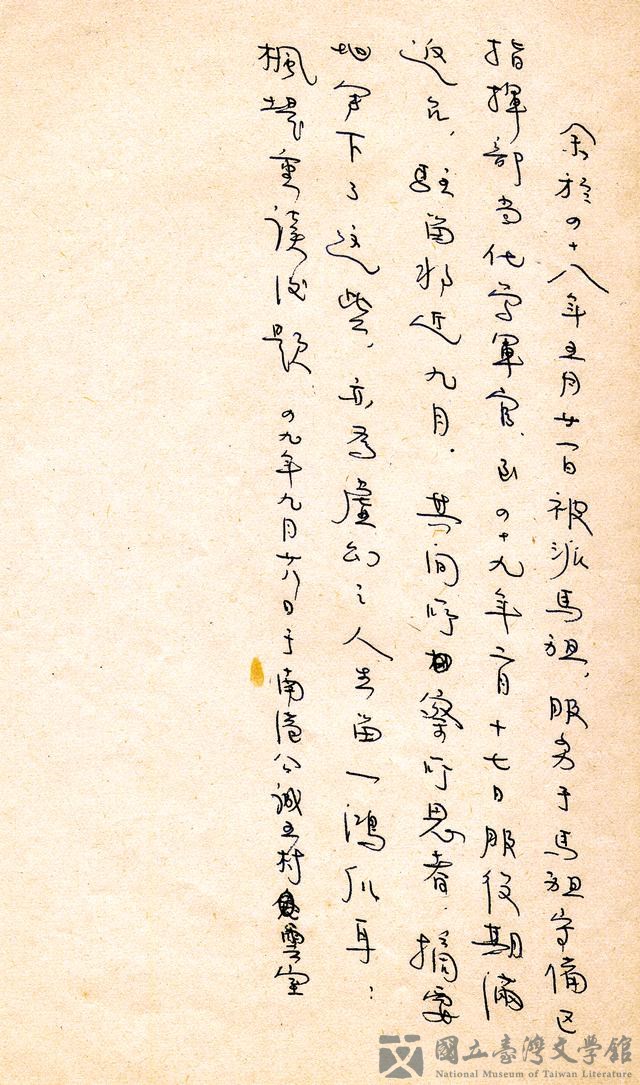 余於四十八年五月廿一日被派馬祖，服务于馬祖守備区
指揮部当化学軍官，至四十九年二月十七日服役期滿
返台，駐留那近九月．其间所相察所思者，摘要
地寫下了这些，亦為虛幻之人生留一鴻爪耳：
楓堤重讀後題 四九年九月廿八日于南港公誠五村雲室
國立臺灣文學館
National Museum of Taiwan Literature